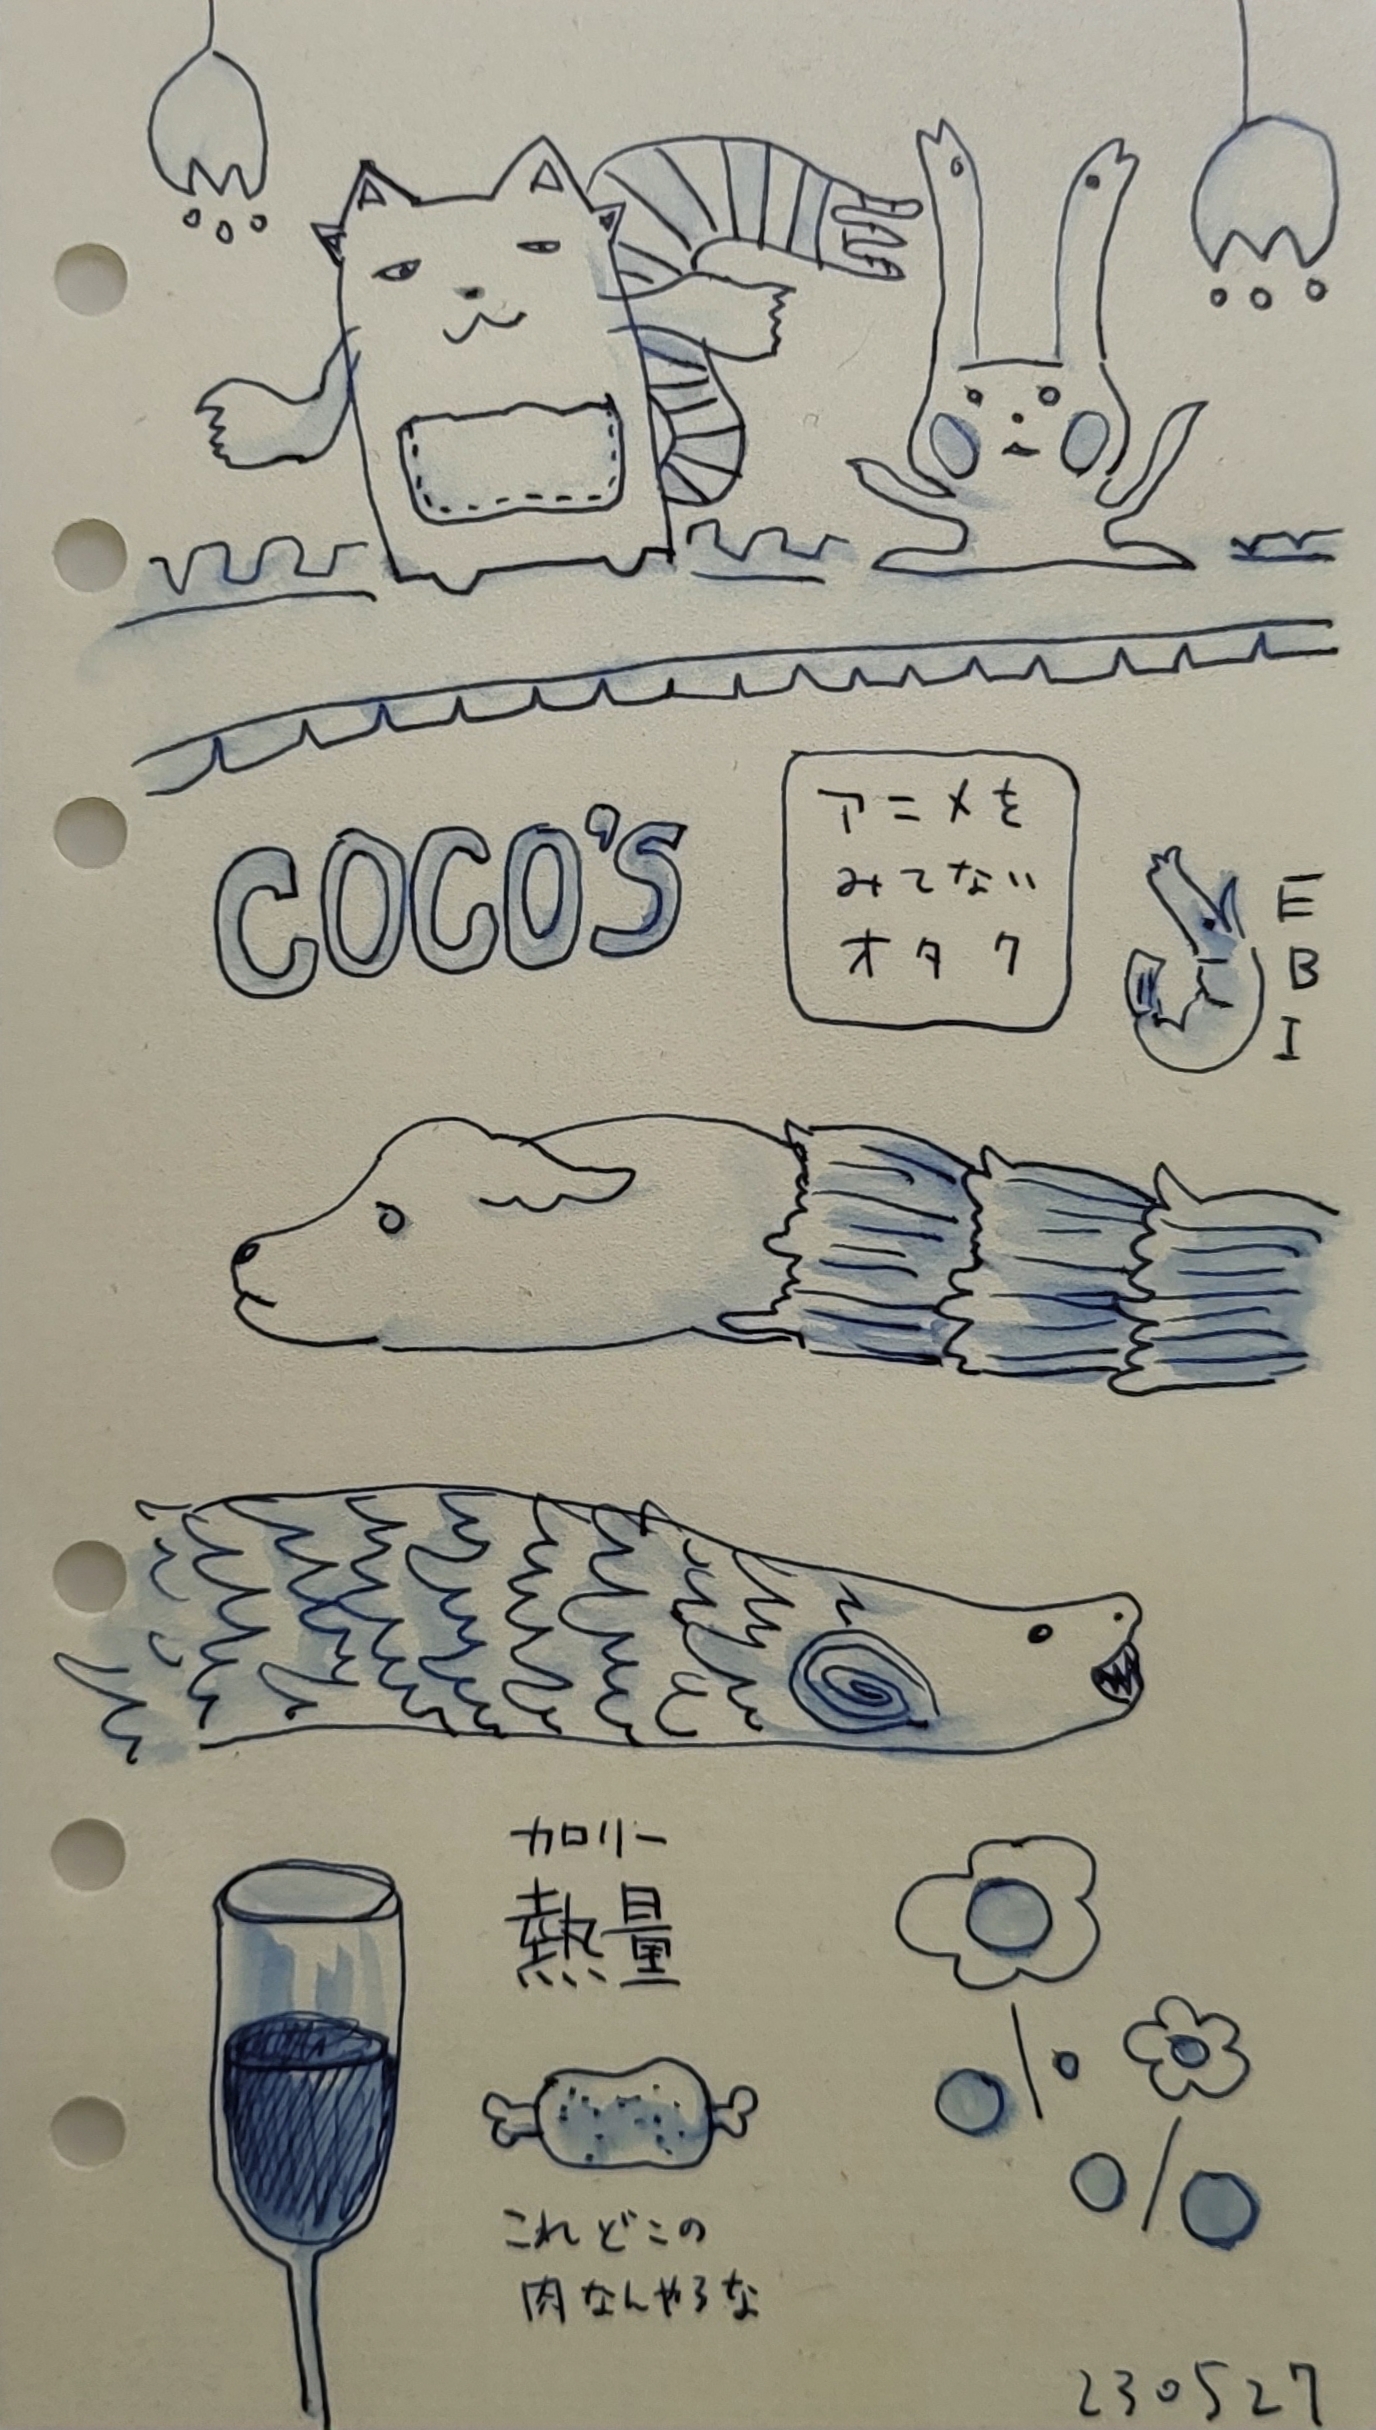 COCO'S
アニメを
みてない
オタク
E
B
I
カロリー
熱量
これどこの
肉なんやろな
230527